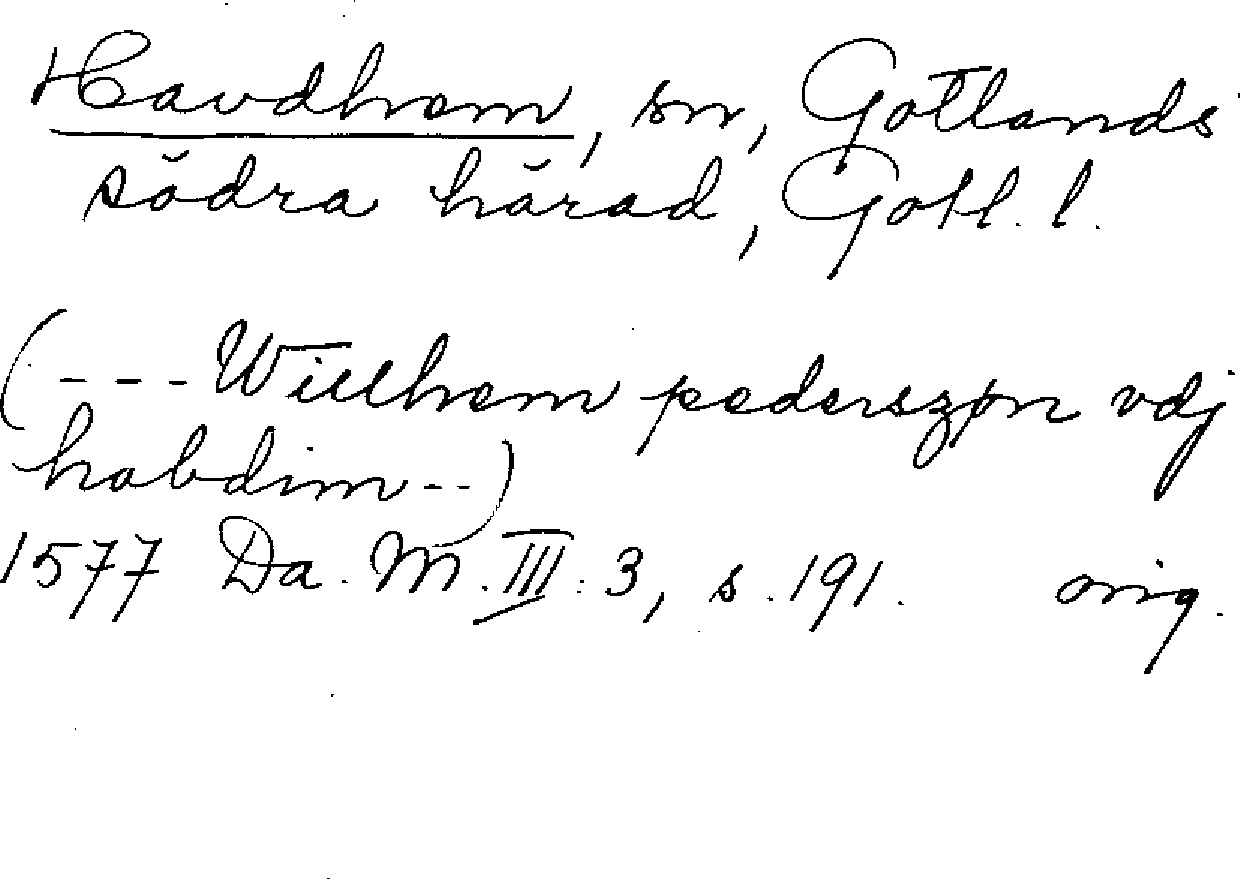 Havdhem, sn, Gotlands
södra härad, Gotl. l.
(--- Willhem pederszøn vdj
habdim--)
1577 Da. M. III: 3, s. 191. orig.